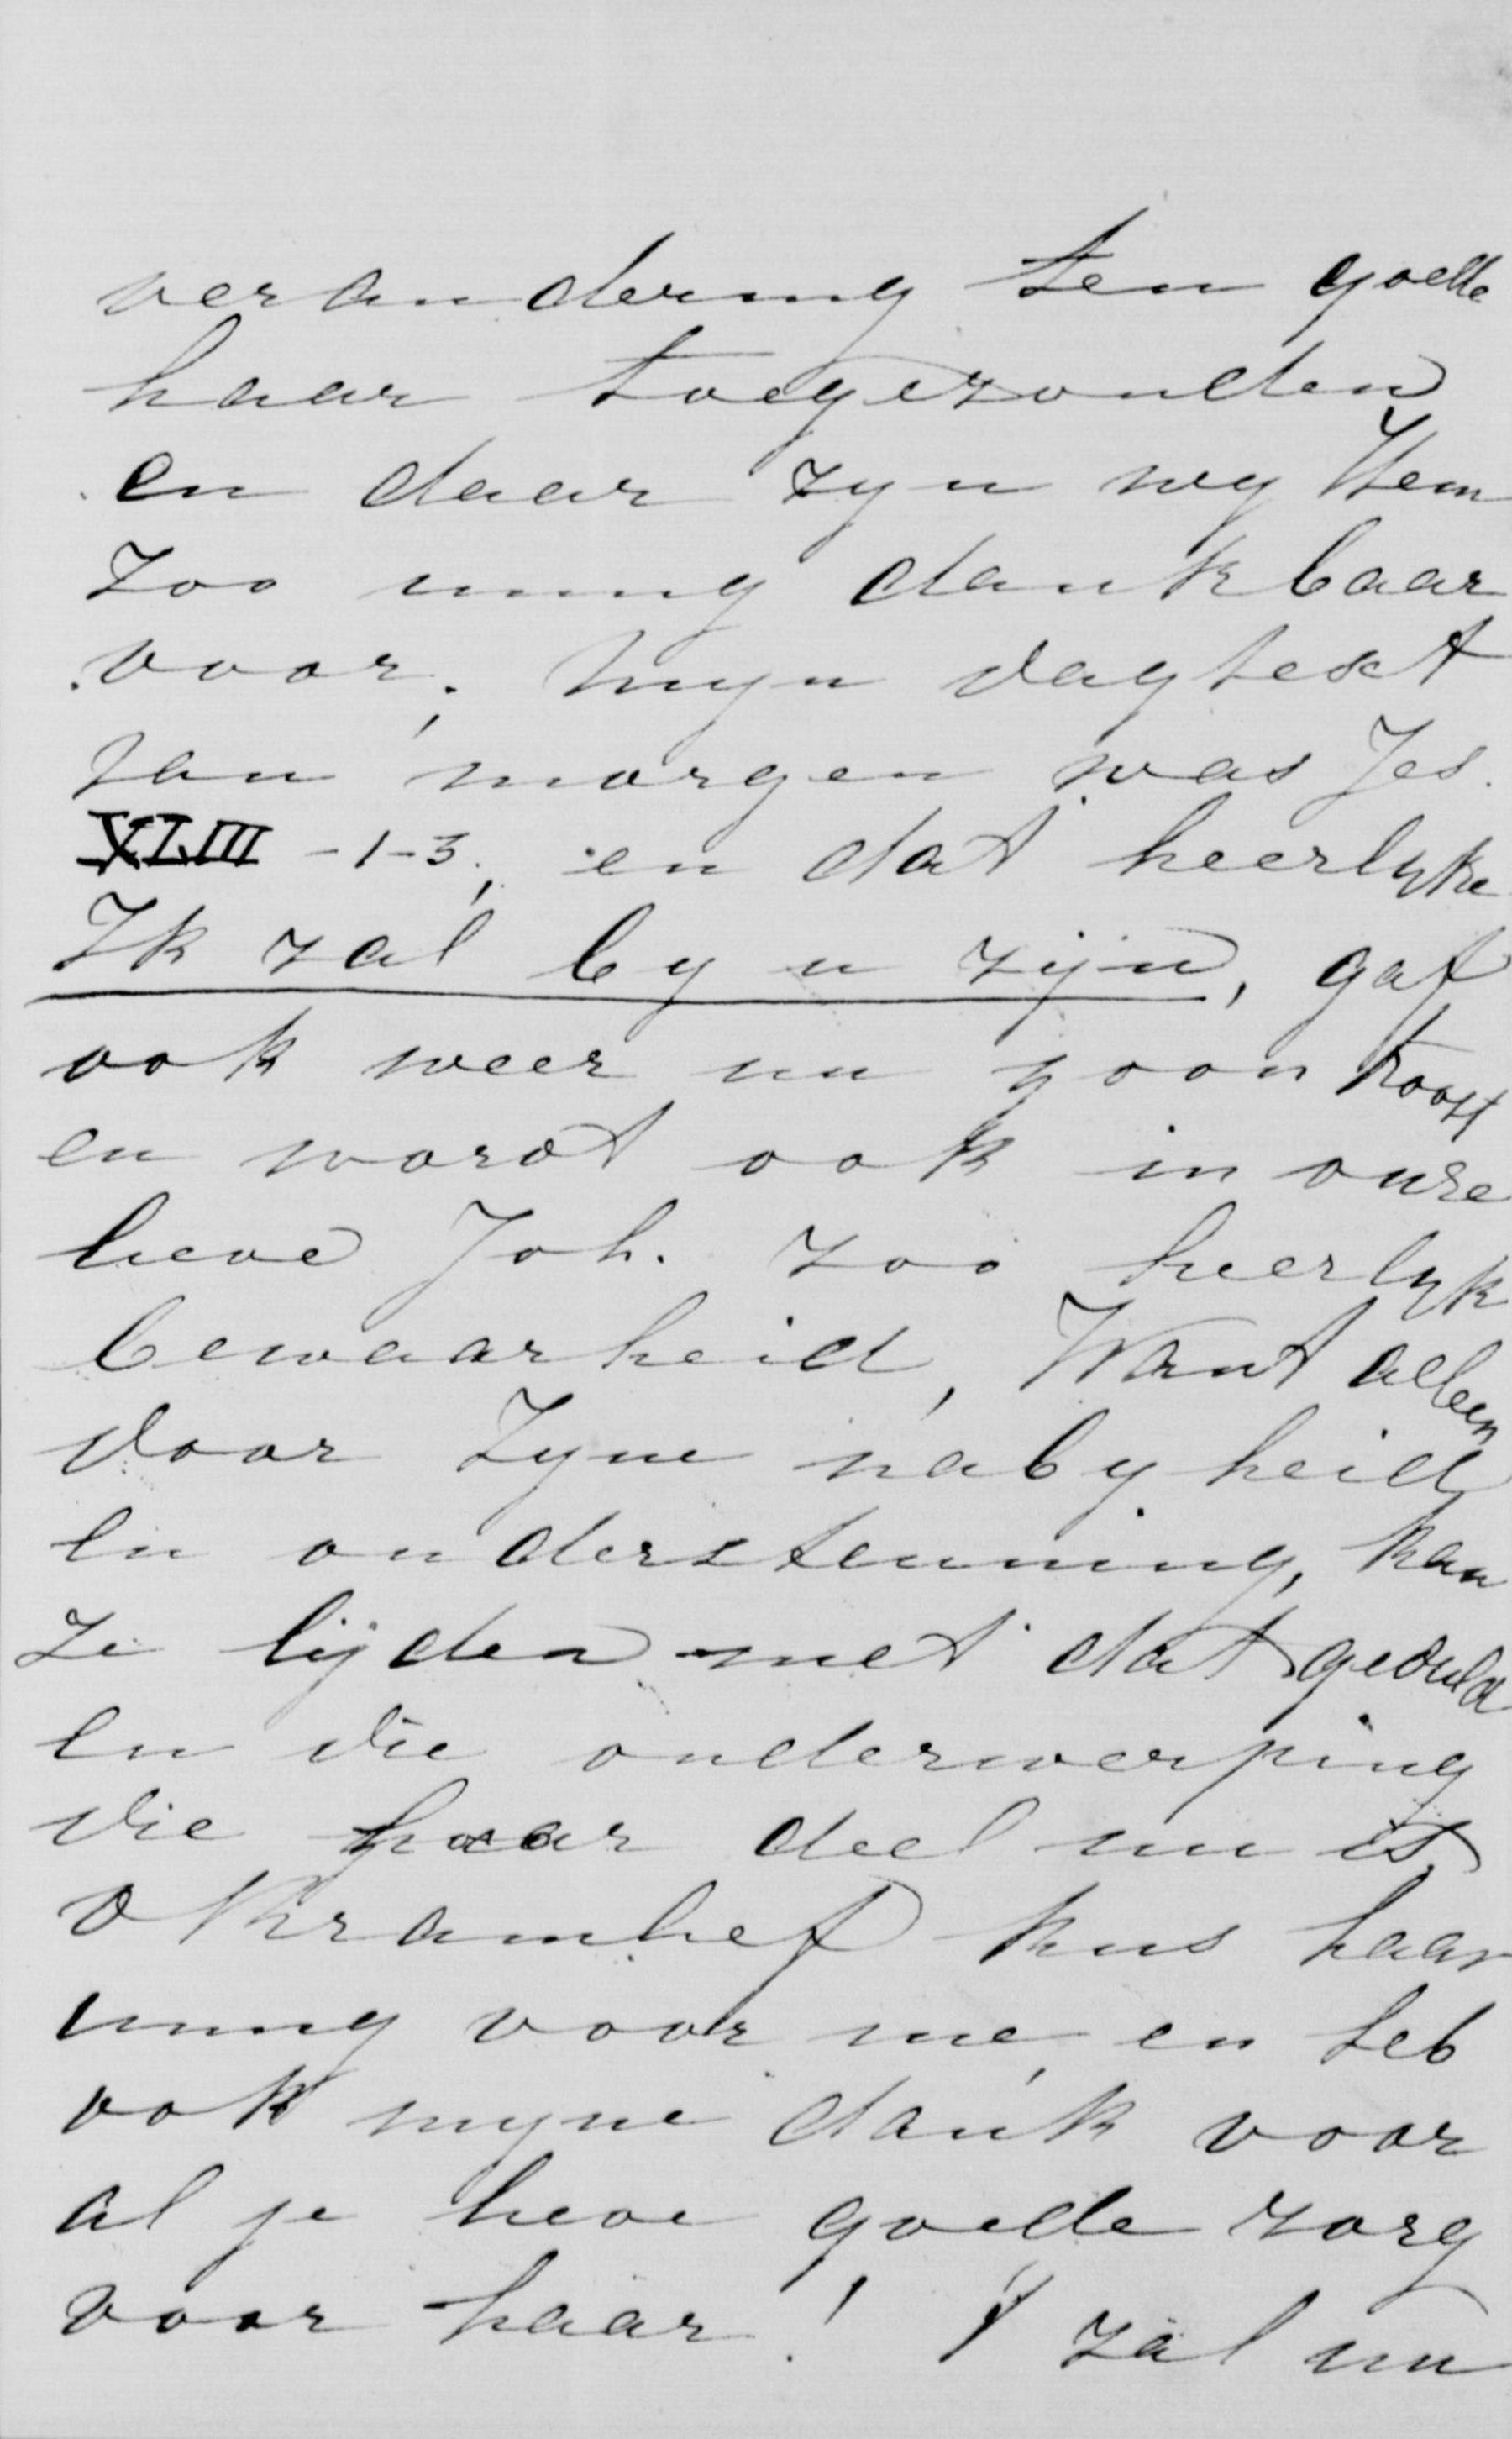 verandering ten goede
haar toegezonden
en daar zyn wy Hem
zoo innig dankbaar
voor; myn dagtekst
van morgen was Jes.
XLIII -1-3; en dat heerlyke
Ik zal by u zijn, gaf
ook weer nu zoon troost
en wordt ook in onze
lieve Joh. zoo heerlyk
bewaarheid, Want alleen
door Zyne nabyheid
en ondersteuning, kan
ze lijden met dat geduld
en die onderwerping
die haar deel nu is
O kus haar
innig voor me, en heb
ook myne dank voor
al je lieve goede zorg
voor haar! 't zal nu